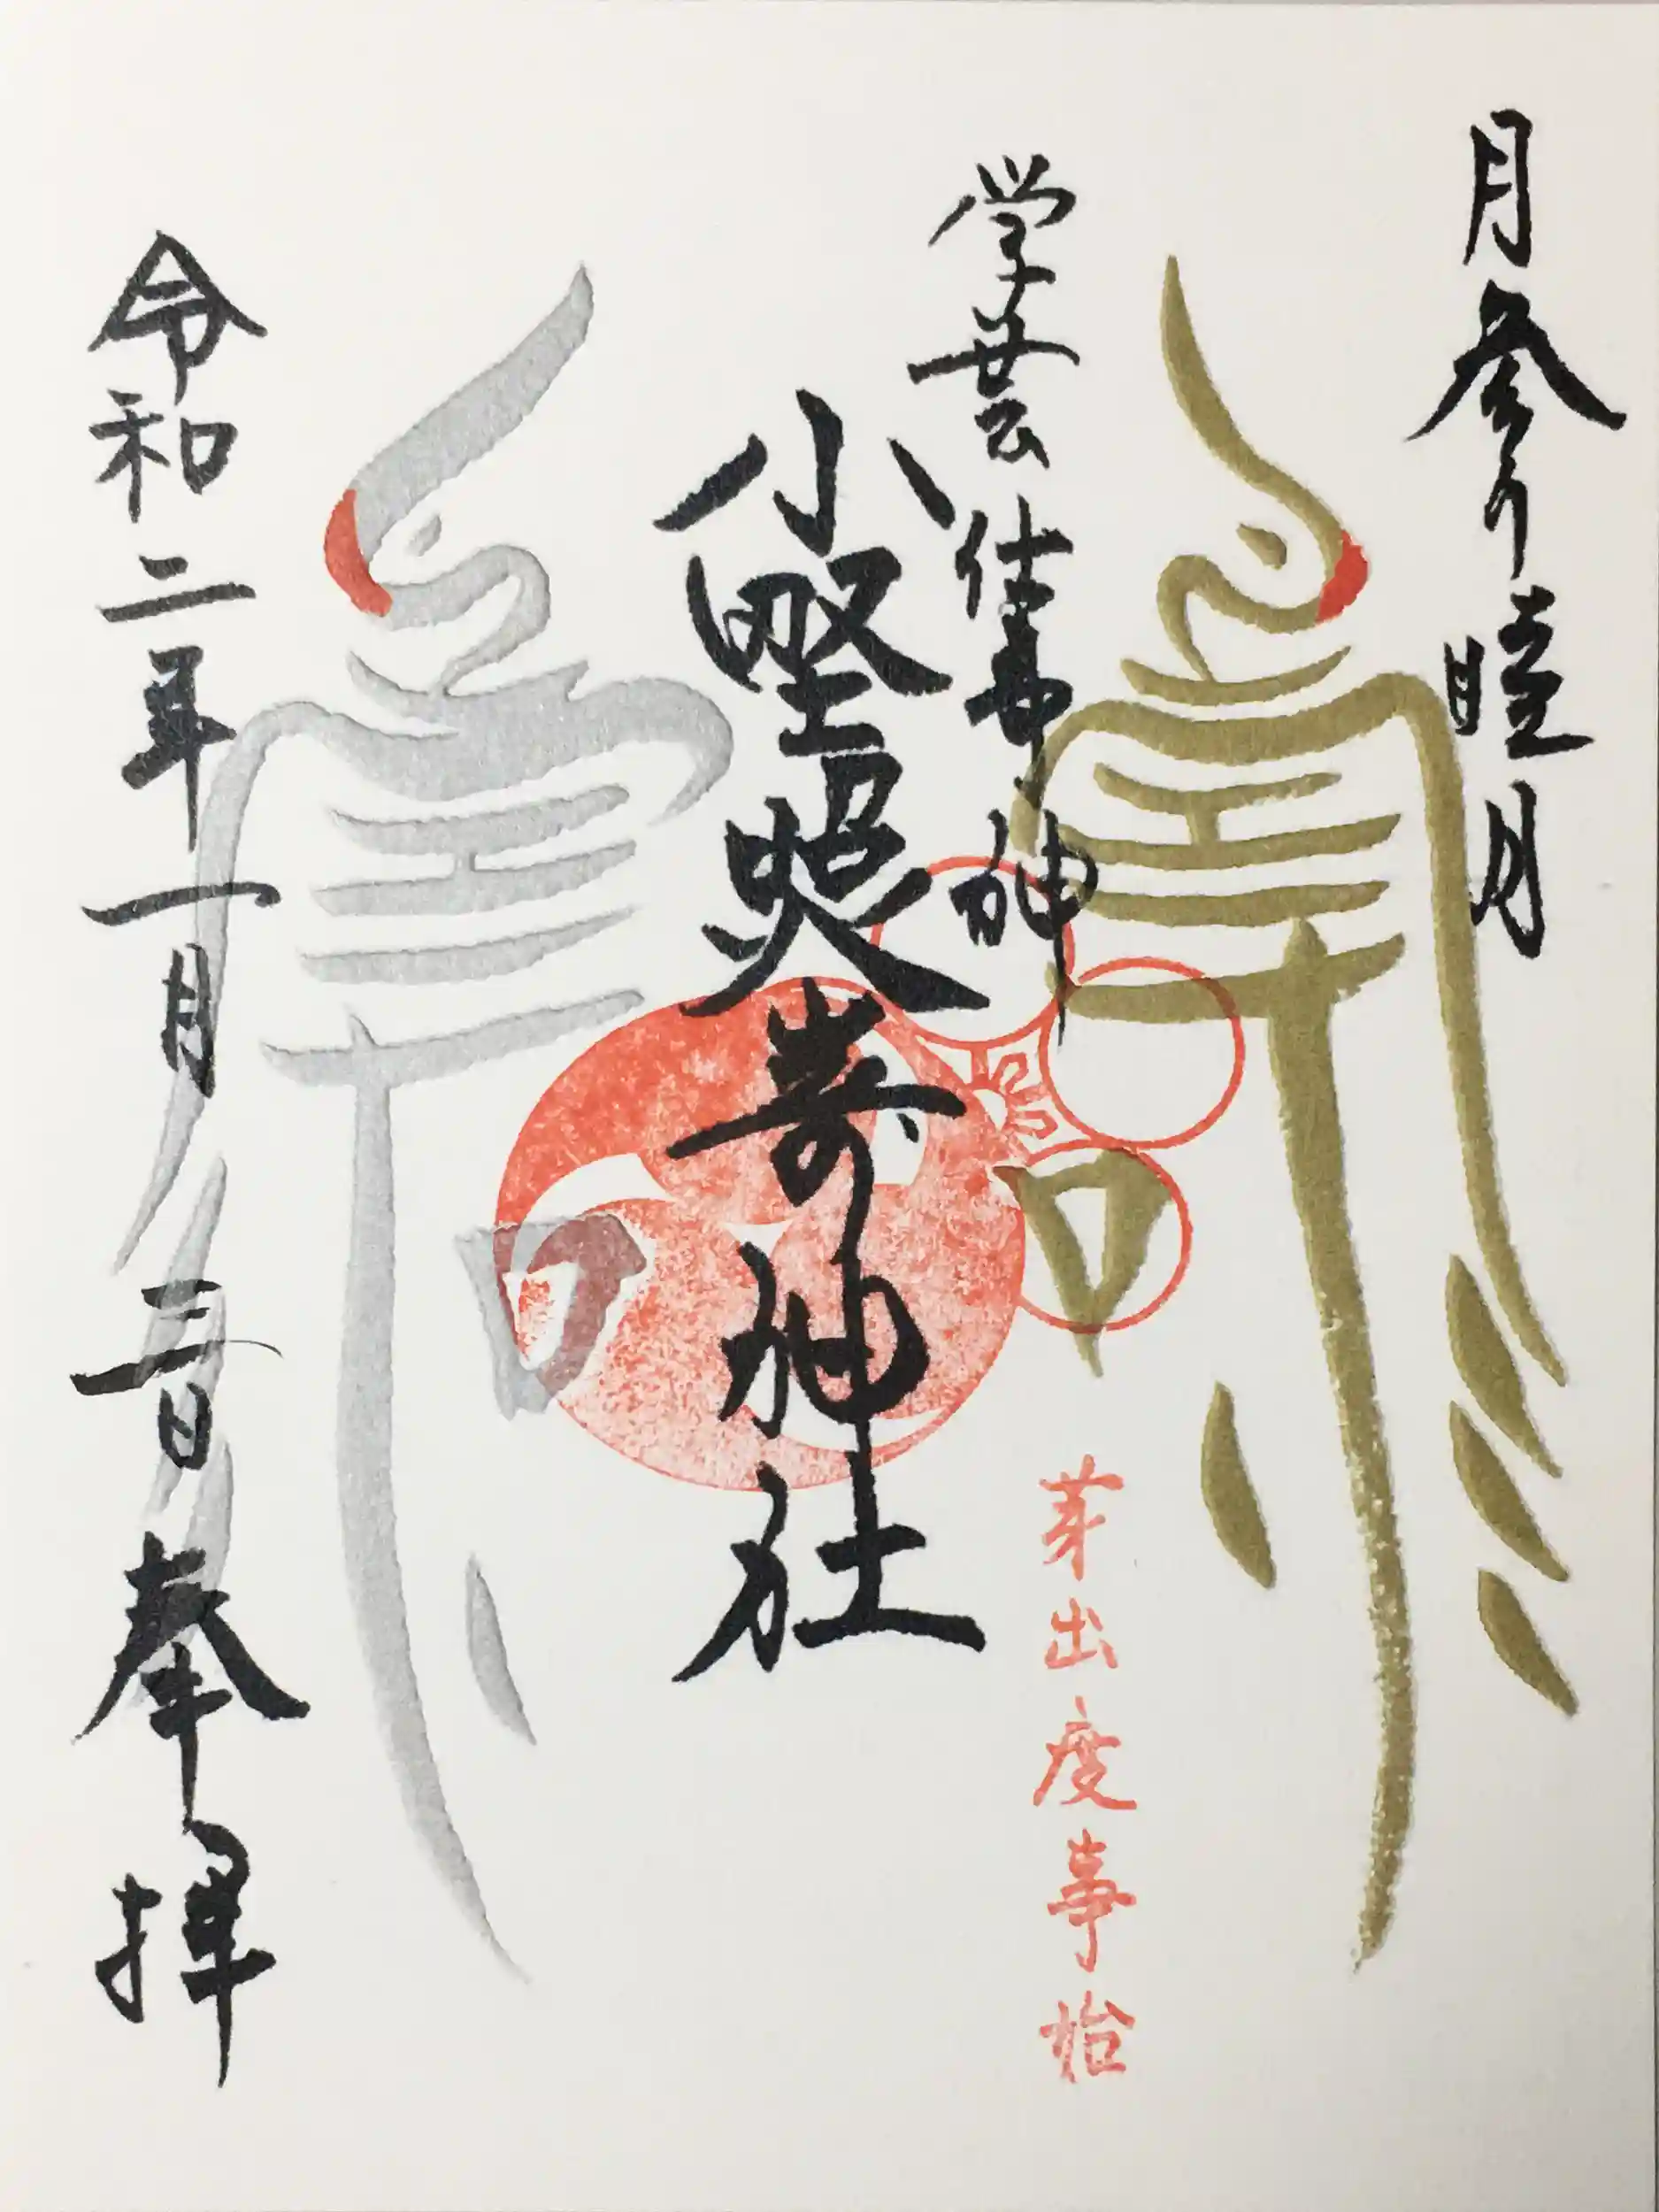 月参り 睦月
学芸 仕事神
小野照崎神社
芽出度事始
令和二年一月三日 奉拝